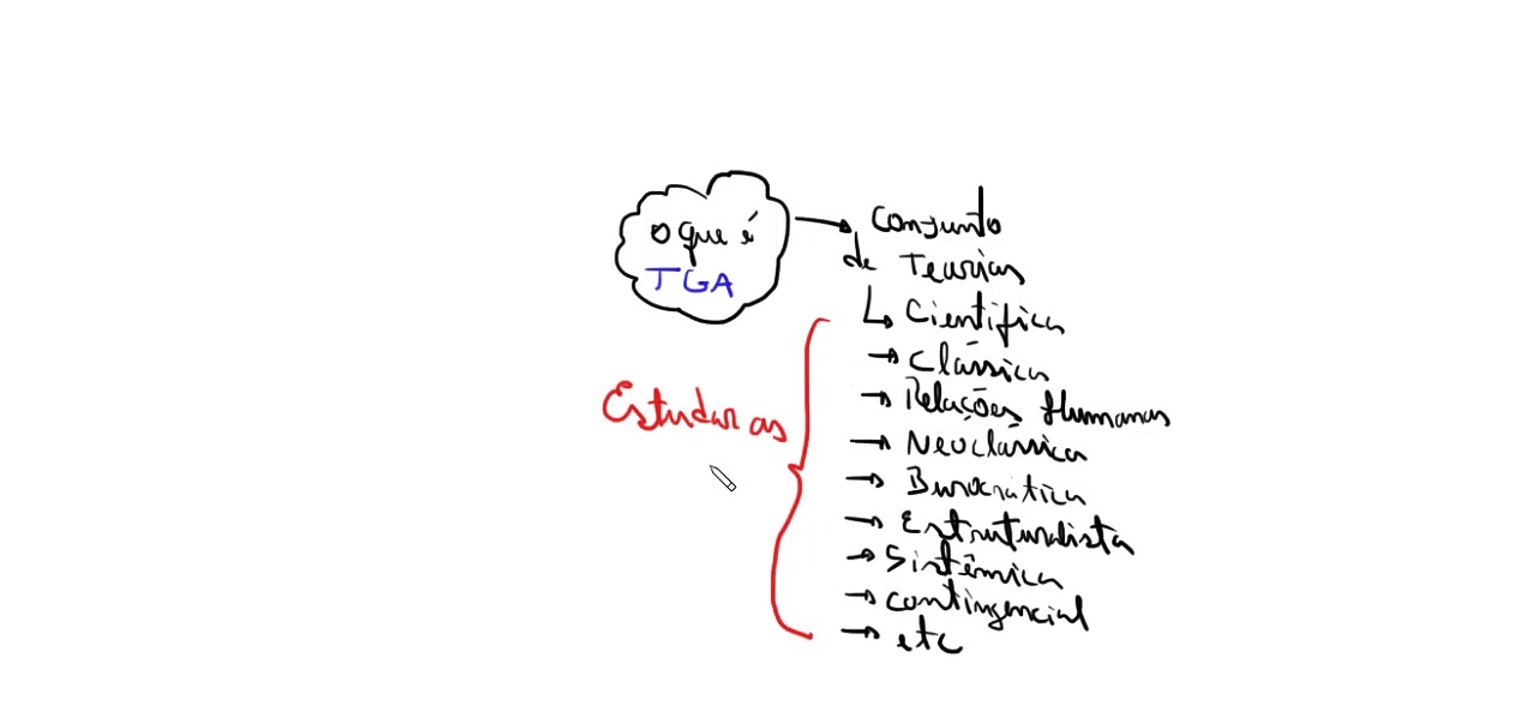 o que é
TGA
Conjunto
de Teorias
Científica
Clássica
Relações Humanas
Neoclássica
Burocrática
Estruturalista
Sistêmica
contingencial
etc
Estudar as